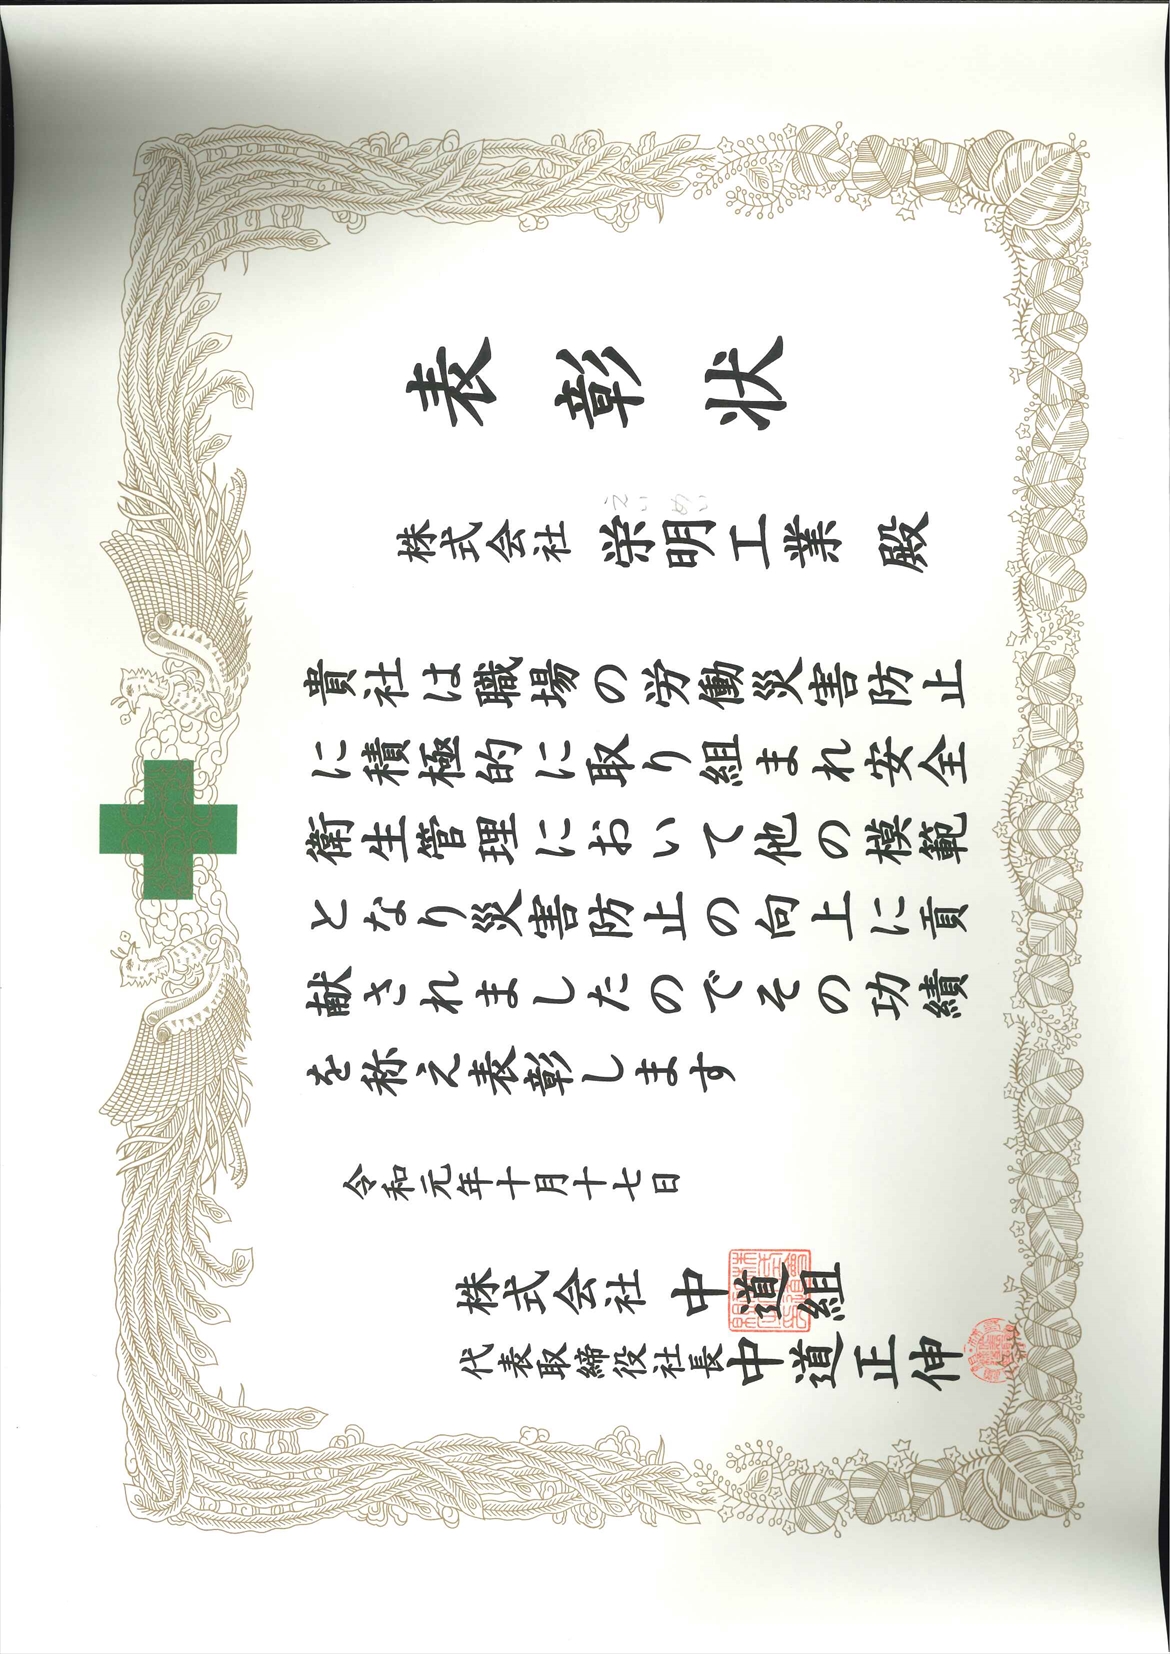 表彰状
株式会社 栄明工業 殿
えい めい
貴社は職場の労働災害防止
に積極的に取り組まれ安全
衛生管理において他の模範
となり災害防止の向上に貢
献されましたのでその功績
を称え表彰します
令和元年十月十七日
株式会社 中道組
代表取締役社長 中道正伸